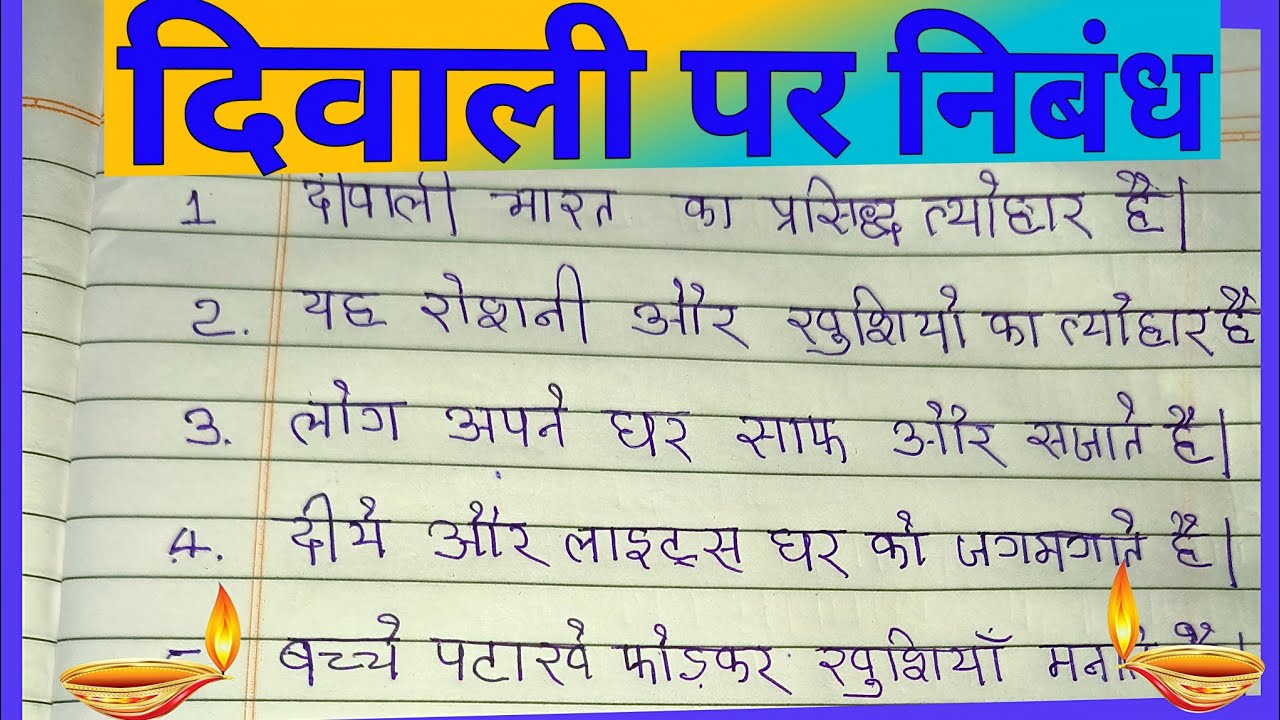 दिवाली पर निबंध
1 दीपाली भारत का प्रसिद्ध त्योहार है।
2. यह रोशनी और खुशियो का त्योहार है
3. लोग अपने घर साफ और सजाते है।
4. दीयै और लाइट्स घर को जगमगाते है।
बच्चे पटाखे फोड़कर खुशियाँ मनाते है।